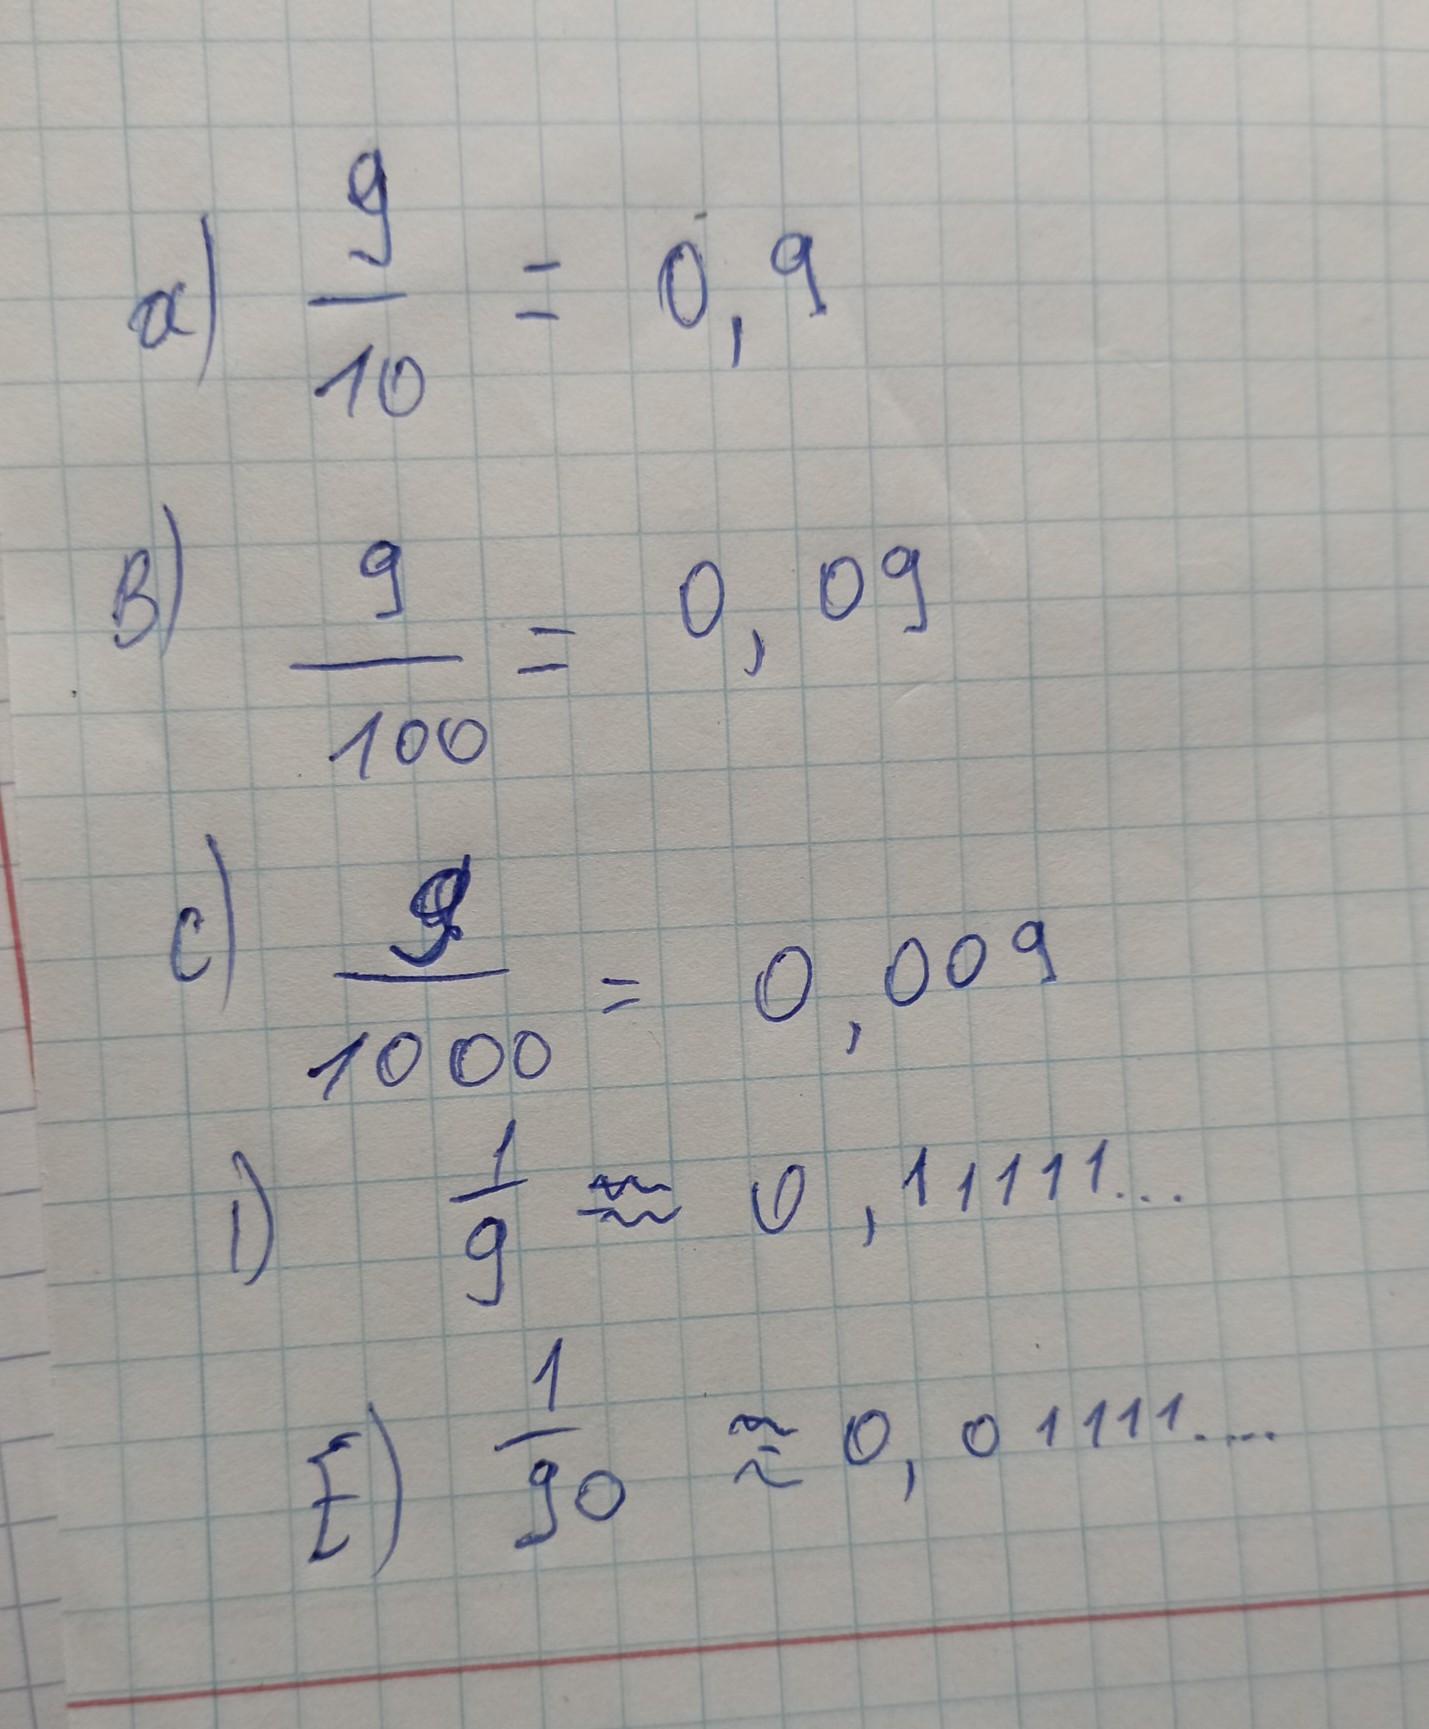 a) 9/10 = 0,9
B) 9/100 = 0,09
c) 9/1000 = 0,009
D) 1/9 ≈ 0,11111...
E) 1/90 ≈ 0,01111....